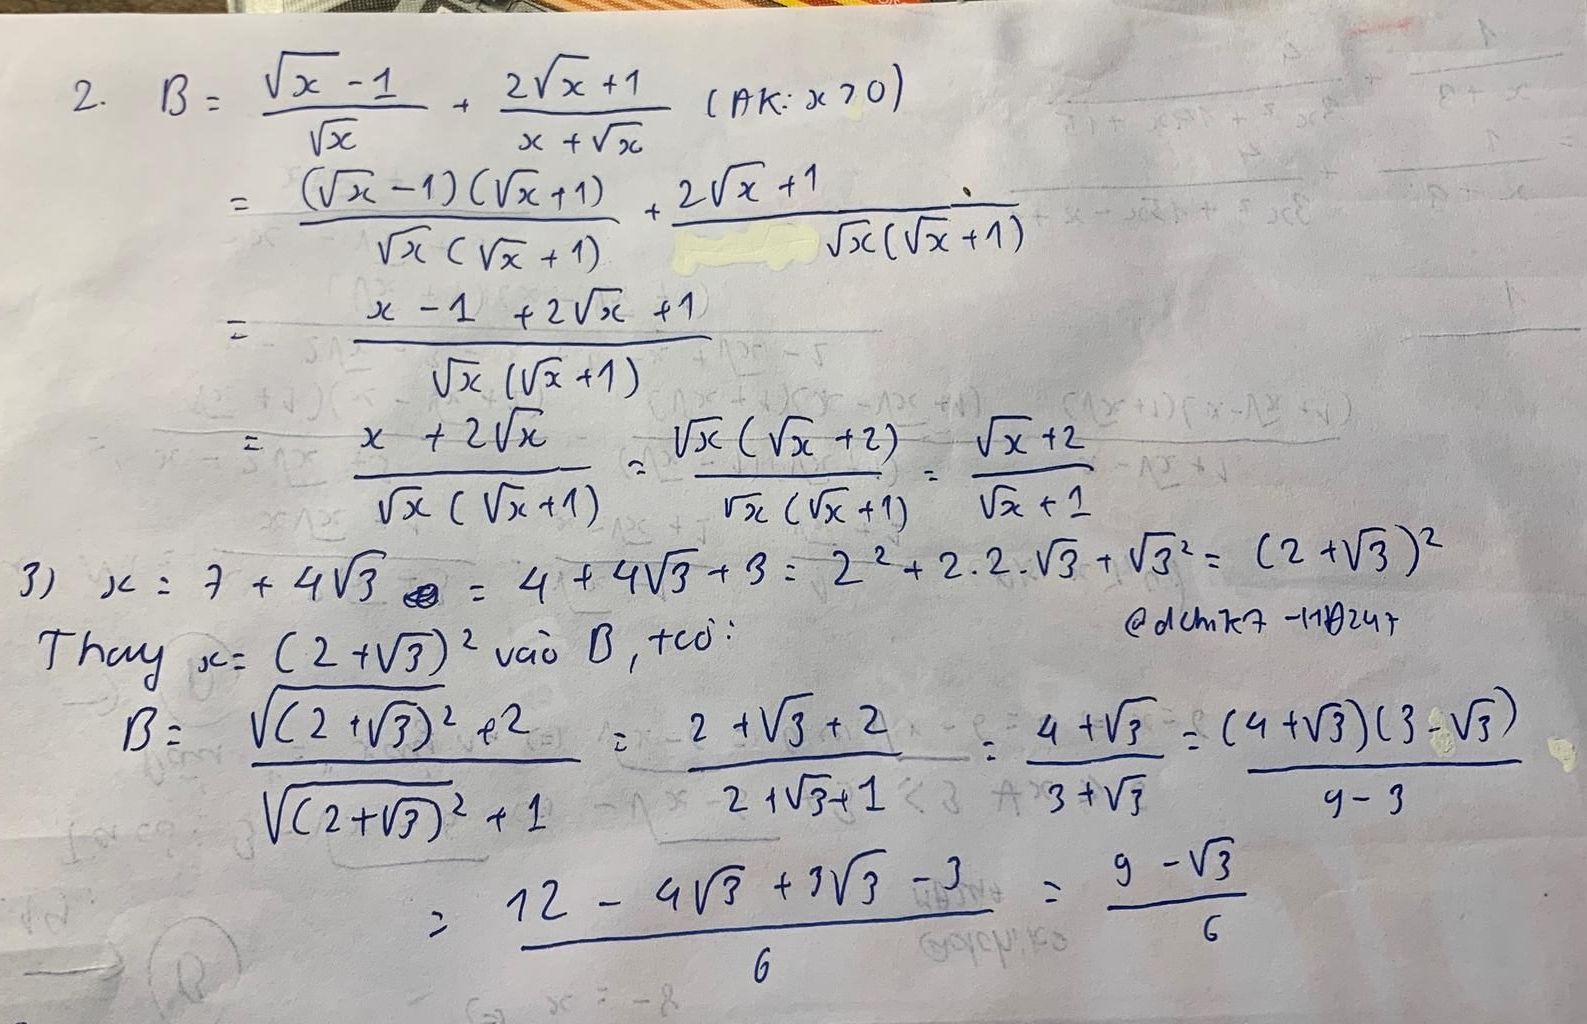 2. B = (√x - 1)/√x + (2√x + 1)/(x + √x) (ĐK: x > 0)
= ((√x - 1)(√x + 1))/(√x(√x + 1)) + (2√x + 1)/(√x(√x + 1))
= (x - 1 + 2√x + 1)/(√x(√x + 1))
= (x + 2√x)/(√x(√x + 1)) = (√x(√x + 2))/(√x(√x + 1)) = (√x + 2)/(√x + 1)
3) x = 7 + 4√3 = 4 + 4√3 + 3 = 2² + 2.2.√3 + √3² = (2 + √3)²
Thay x = (2 + √3)² vào B, tcó:
B = (√(2 + √3)² + 2)/(√(2 + √3)² + 1) = (2 + √3 + 2)/(2 + √3 + 1) = (4 + √3)/(3 + √3) = ((4 + √3)(3 - √3))/(9 - 3)
= (12 - 4√3 + 3√3 - 3)/6 = (9 - √3)/6